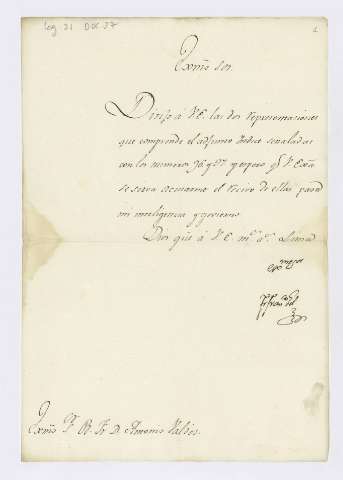 Leg. 21 Doc. 37
Exmo. Sor.
Dirijo á V.E. las dos representaciones
que comprende el adjunto Indice señaladas
con los numeros 96 y 97 y espero qe. V. Exa.
se sirva acusarme el recivo de ellas para
mi inteligencia y govierno.
Dios gûe á V.E. ms. as. Lima
Exmo. Sr. B. Fr. Dn. Antonio Valdés.